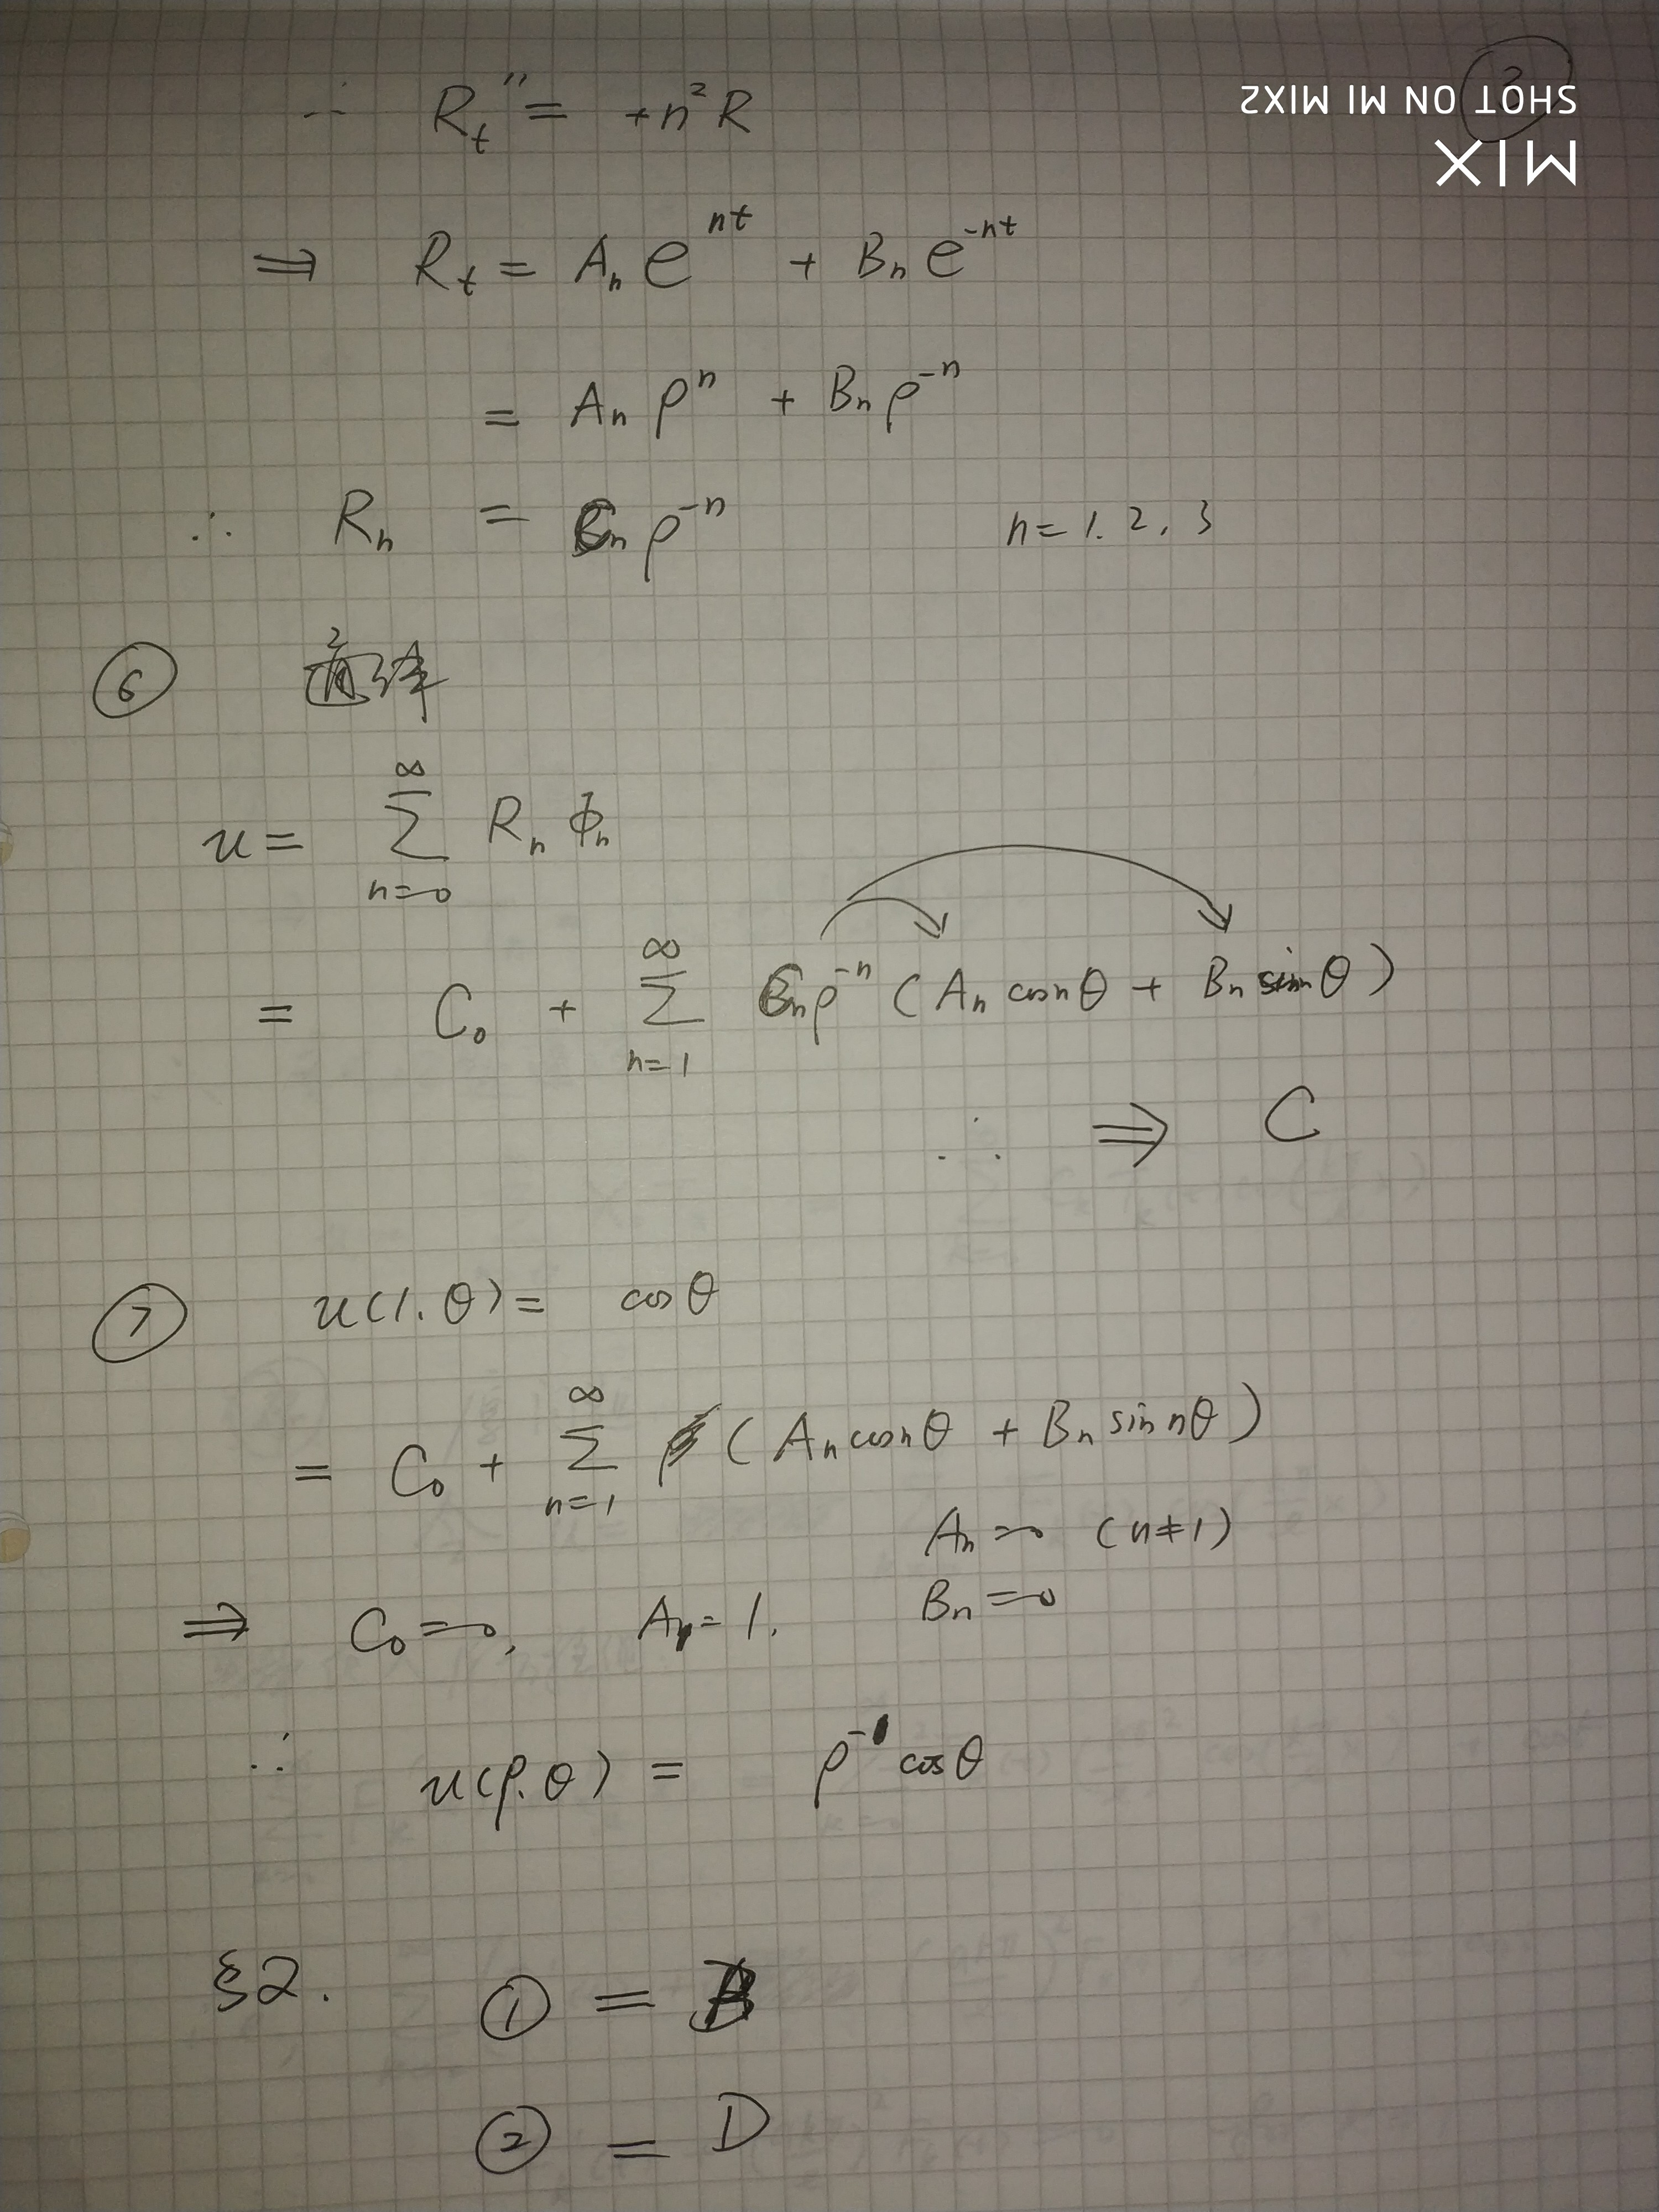 SHOT ON MI MIX2
MIX
3
∴ R_t'' = +n²R
⇒ R_t = A_n e^{nt} + B_n e^{-nt}
= A_n ρ^n + B_n ρ^{-n}
∴ R_n = C_n ρ^{-n} n=1.2.3
⑥
u = ∑_{n=0}^{∞} R_n Φ_n
= C_0 + ∑_{n=1}^{∞} C_n ρ^{-n} (A_n cos nθ + B_n sin nθ)
∴ ⇒ C
⑦ u(1.θ) = cosθ
= C_0 + ∑_{n=1}^{∞} (A_n cos nθ + B_n sin nθ)
A_n=0 (n≠1)
⇒ C_0=0, A_1=1. B_n=0
∴ u(ρ.θ) = ρ^{-1} cosθ
§2. ① =
② = D